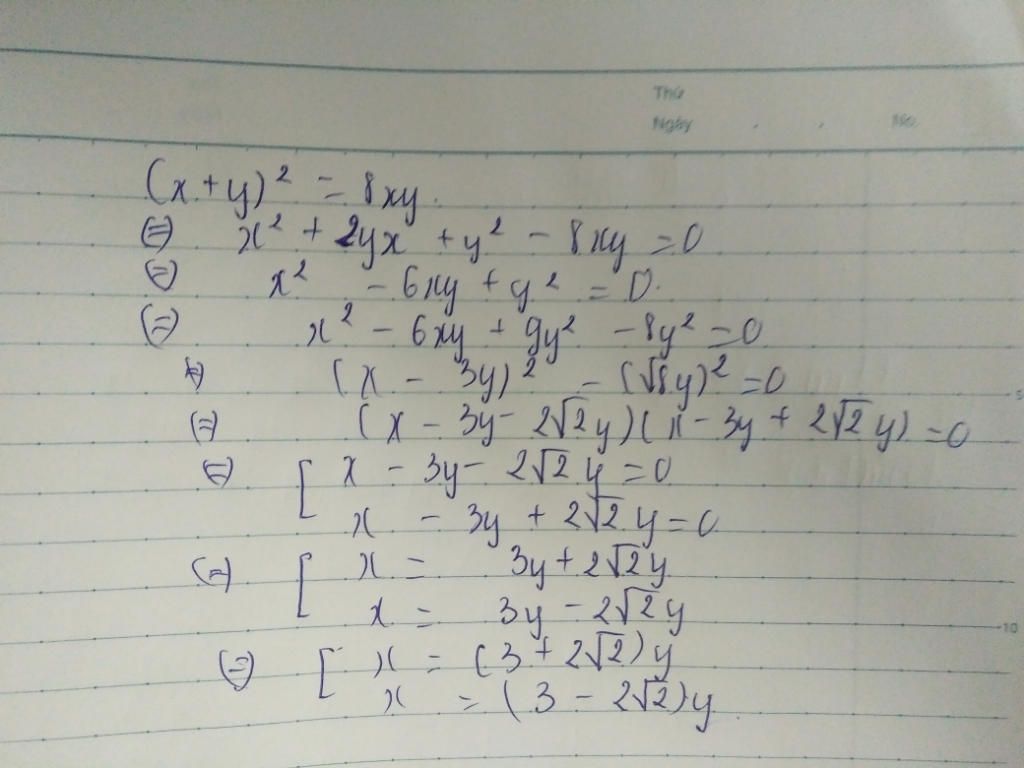 Thứ
Ngày No.
(x + y)² = 8xy.
⇔ x² + 2yx + y² - 8xy = 0
⇔ x² - 6xy + y² = 0.
⇔ x² - 6xy + 9y² - 8y² = 0
⇔ (x - 3y)² - (√8y)² = 0
5
⇔ (x - 3y - 2√2y)(x - 3y + 2√2y) = 0
⇔ [ x - 3y - 2√2y = 0
x - 3y + 2√2y = 0
⇔ [ x = 3y + 2√2y
x = 3y - 2√2y
10
⇔ [ x = (3 + 2√2)y
x = (3 - 2√2)y